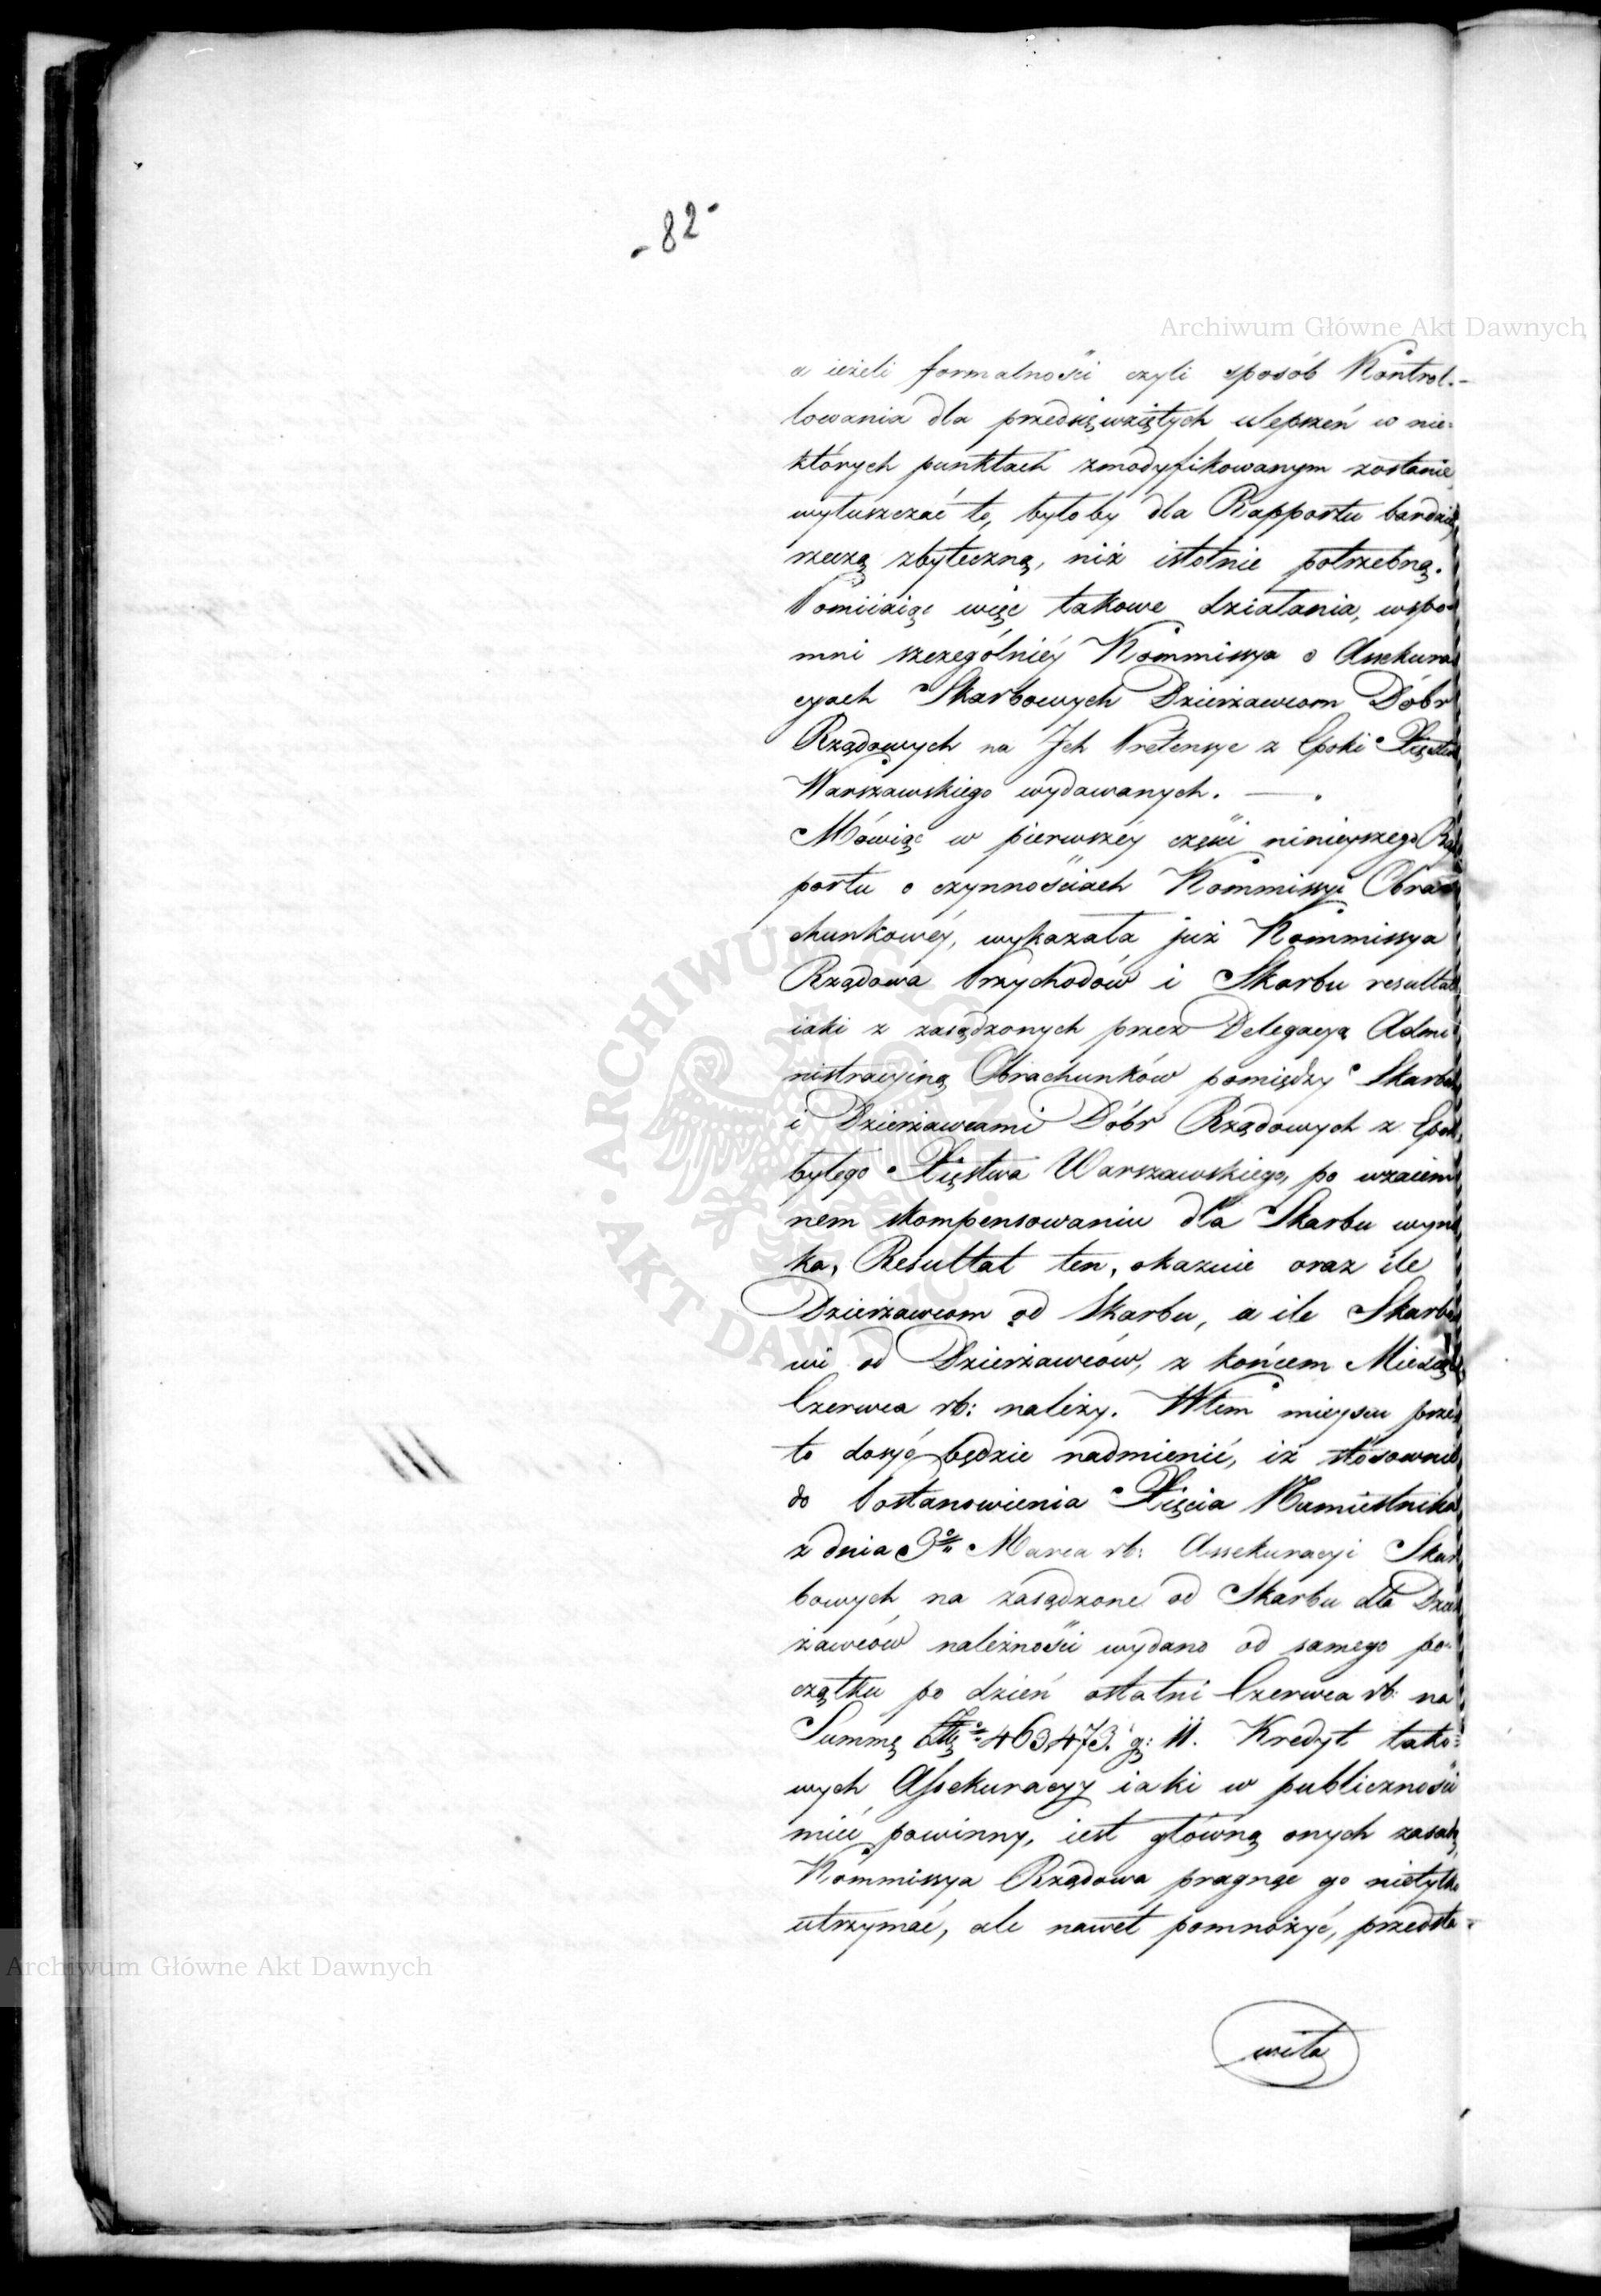 -82-
Archiwum Główne Akt Dawnych
a ieżeli formalności czyli sposób Kontrol-
lowania dla przedsięwziętych ulepszeń w nie-
których punktach zmodyfikowanym zostanie,
wyłuszczać to, byłoby dla Rapportu bardziej
rzeczą zbyteczną, niż istotnie potrzebną.
Pomiiaiąc więc takowe działania, wspo-
mni szczególniéy Kommissya o Assekura
cyach Skarbowych Dzierżawcom Dóbr
Rządowych na Ich Pretensye z Epoki Xięstwa
Warszawskiego wydawanych. —.
Mówiąc w pierwszéy części ninieyszego Rap
portu o czynnościach Kommissyi Obra
chunkowéy, wykazała już Kommissya
Rządowa Przychodów i Skarbu resultat
iaki z zasądzonych przez Delegacyą Admi
nistracyiną Obrachunków pomiędzy Skarbem
i Dzierżawcami Dóbr Rządowych z Epoki
byłego Xięstwa Warszawskiego, po wzaiem
nem skompensowaniu dla Skarbu wyni
ka, Resultat ten, okazuie oraz ile
Dzierżawcom od Skarbu, a ile Skarbo
wi od Dzierżawców, z końcem Miesiąca
Czerwca rb: należy. W tem mieyscu prze
to dosyć będzie nadmienić, iż stósownie
do Postanowienia Xięcia Namiestnika
z dnia 3go Marca rb: Assekuracyi Skar
bowych na zasądzone od Skarbu dla Dzier
żawców należności wydano od samego po-
czątku po dzień ostatni Czerwca rb: na
Summę 463,473. g: 11. Kredyt tako=
wych Assekuracyy iaki w publiczności
mieć powinny, iest główną onych zasadą,
Kommissya Rządowa pragnąc go nietylko
utrzymać, ale nawet pomnożyć, przedsta-
wiła
ARCHIWUM GŁÓWNE AKT DAWNYCH
Archiwum Główne Akt Dawnych